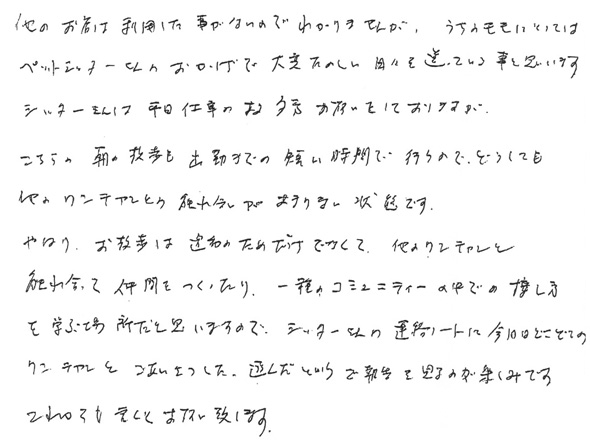 他のお店は利用した事がないのでわかりませんが、うちのモモにとっては
ペットシッターさんのおかげで大変たのしい日々を送っている事と思います
シッターさんは平日仕事のある夕方お願いをしておりますが、
こちらの朝の散歩も出勤までの短い時間で行うので、どうしても
他のワンチャンとの触れ合いがあまりない状態です。
やはり、お散歩は運動のためだけでなくて、他のワンチャンと
触れ合って仲間をつくったり、一種のコミュニティーの中での接し方
を学ぶ場所だと思いますので、シッターさんの連絡ノートに今日はどこどこの
ワンチャンとごあいさつした、遊んだというご報告を見るのが楽しみです
これからも宜しくお願い致します。